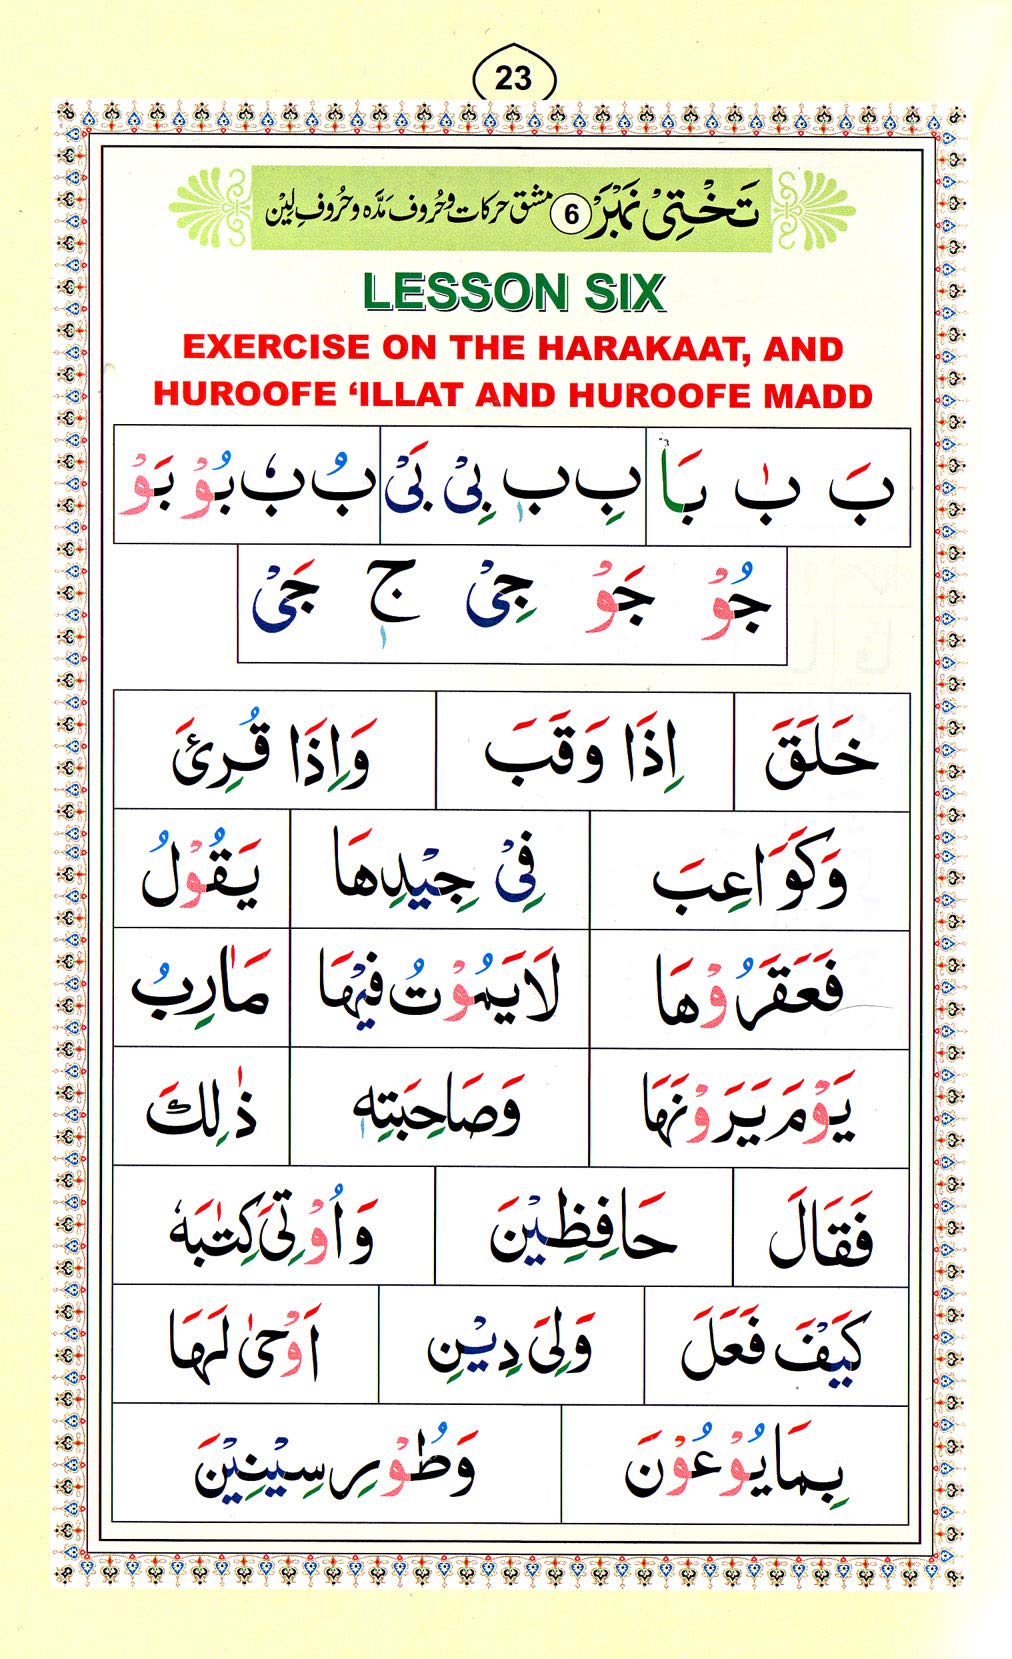 23
تَخْتِیْ نَمْبَرْ 6 مشق حرکات و حُروف مَدَّہ و حُروفِ لِیْن
LESSON SIX
EXERCISE ON THE HARAKAAT, AND
HUROOFE ‘ILLAT AND HUROOFE MADD
بَ بٰ بَا بِ بٖ بِیْ بَیْ بُ بٗ بُوْ بَوْ
جُوْ جَوْ جِیْ جٖ جَیْ
خَلَقَ اِذَا وَقَبَ وَاِذَا قُرِئَ
وَكَوَاعِبَ فِیْ جِیْدِهَا یَقُوْلُ
فَعَقَرُوْهَا لَایَمُوْتُ فِیْهَا مَاٰرِبُ
یَوْمَ یَرَوْنَهَا وَصَاحِبَتِهٖ ذٰلِكَ
فَقَالَ حَافِظِیْنَ وَاُوْتِیَ كِتٰبَهٗ
كَیْفَ فَعَلَ وَلِیَ دِیْنِ اَوْحٰی لَهَا
بِمَا یُوْعُوْنَ وَطُوْرِ سِیْنِیْنَ